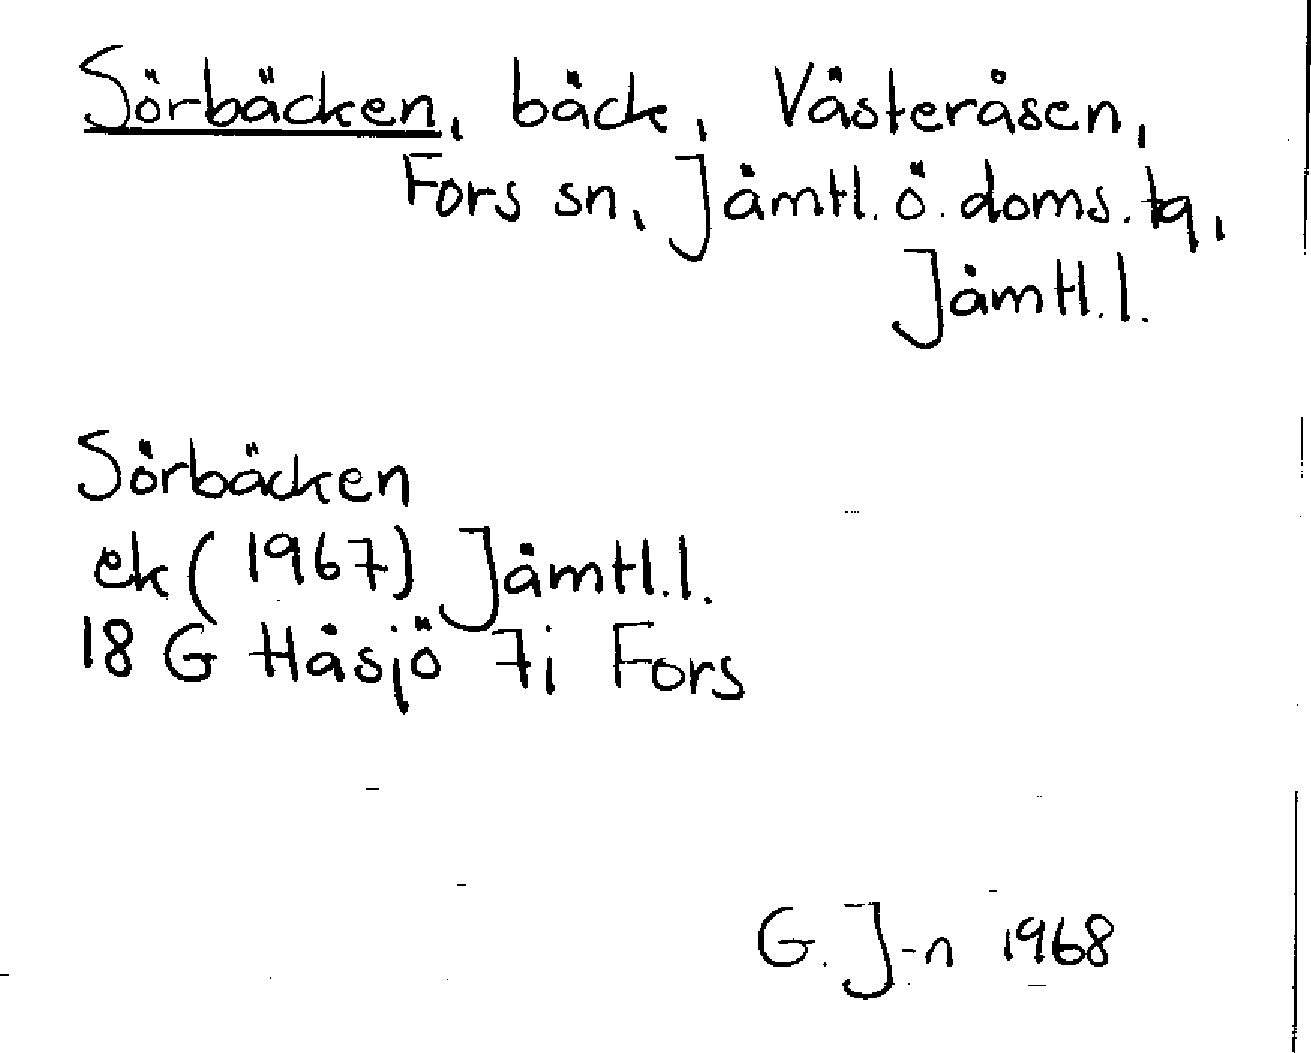 Sörbäcken, bäck, Västeråsen,
Fors sn, Jämtl. ö. doms. tg,
Jämtl. l.
Sörbäcken
ek (1967) Jämtl. l.
18 G Håsjö 7i Fors
G. J-n 1968